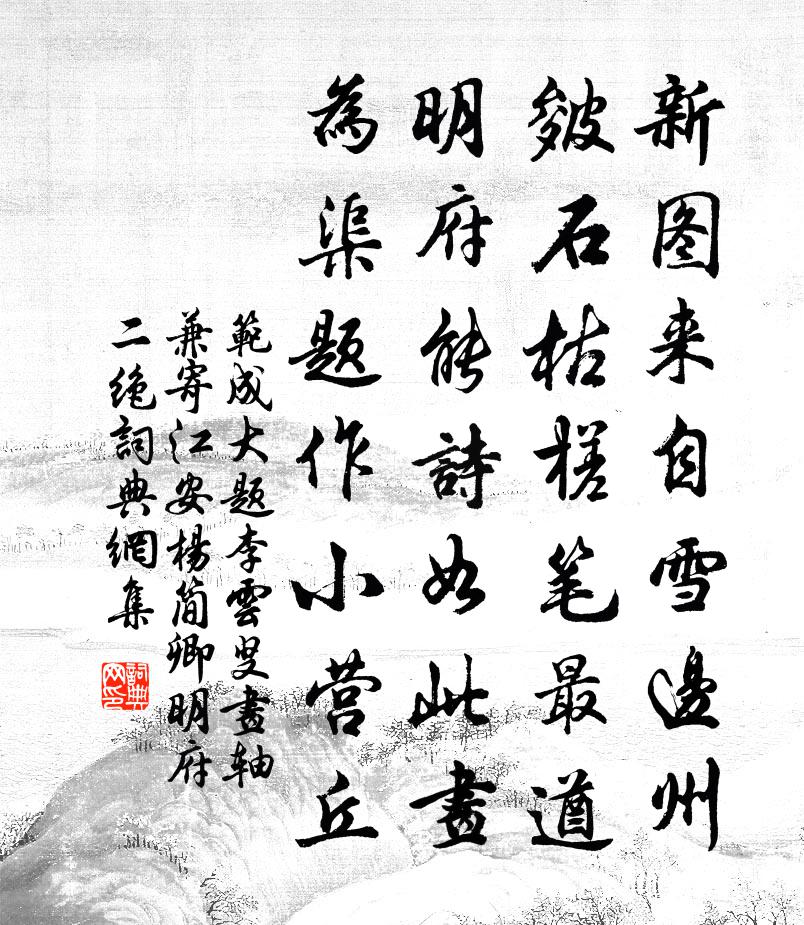 新图来自雪邊州
皴石枯槎笔最遒
明府能詩如此畫
為渠题作小营丘
範成大题李雲叟畫轴
兼寄江安楊简卿明府
二绝詞典網集
詞典网印